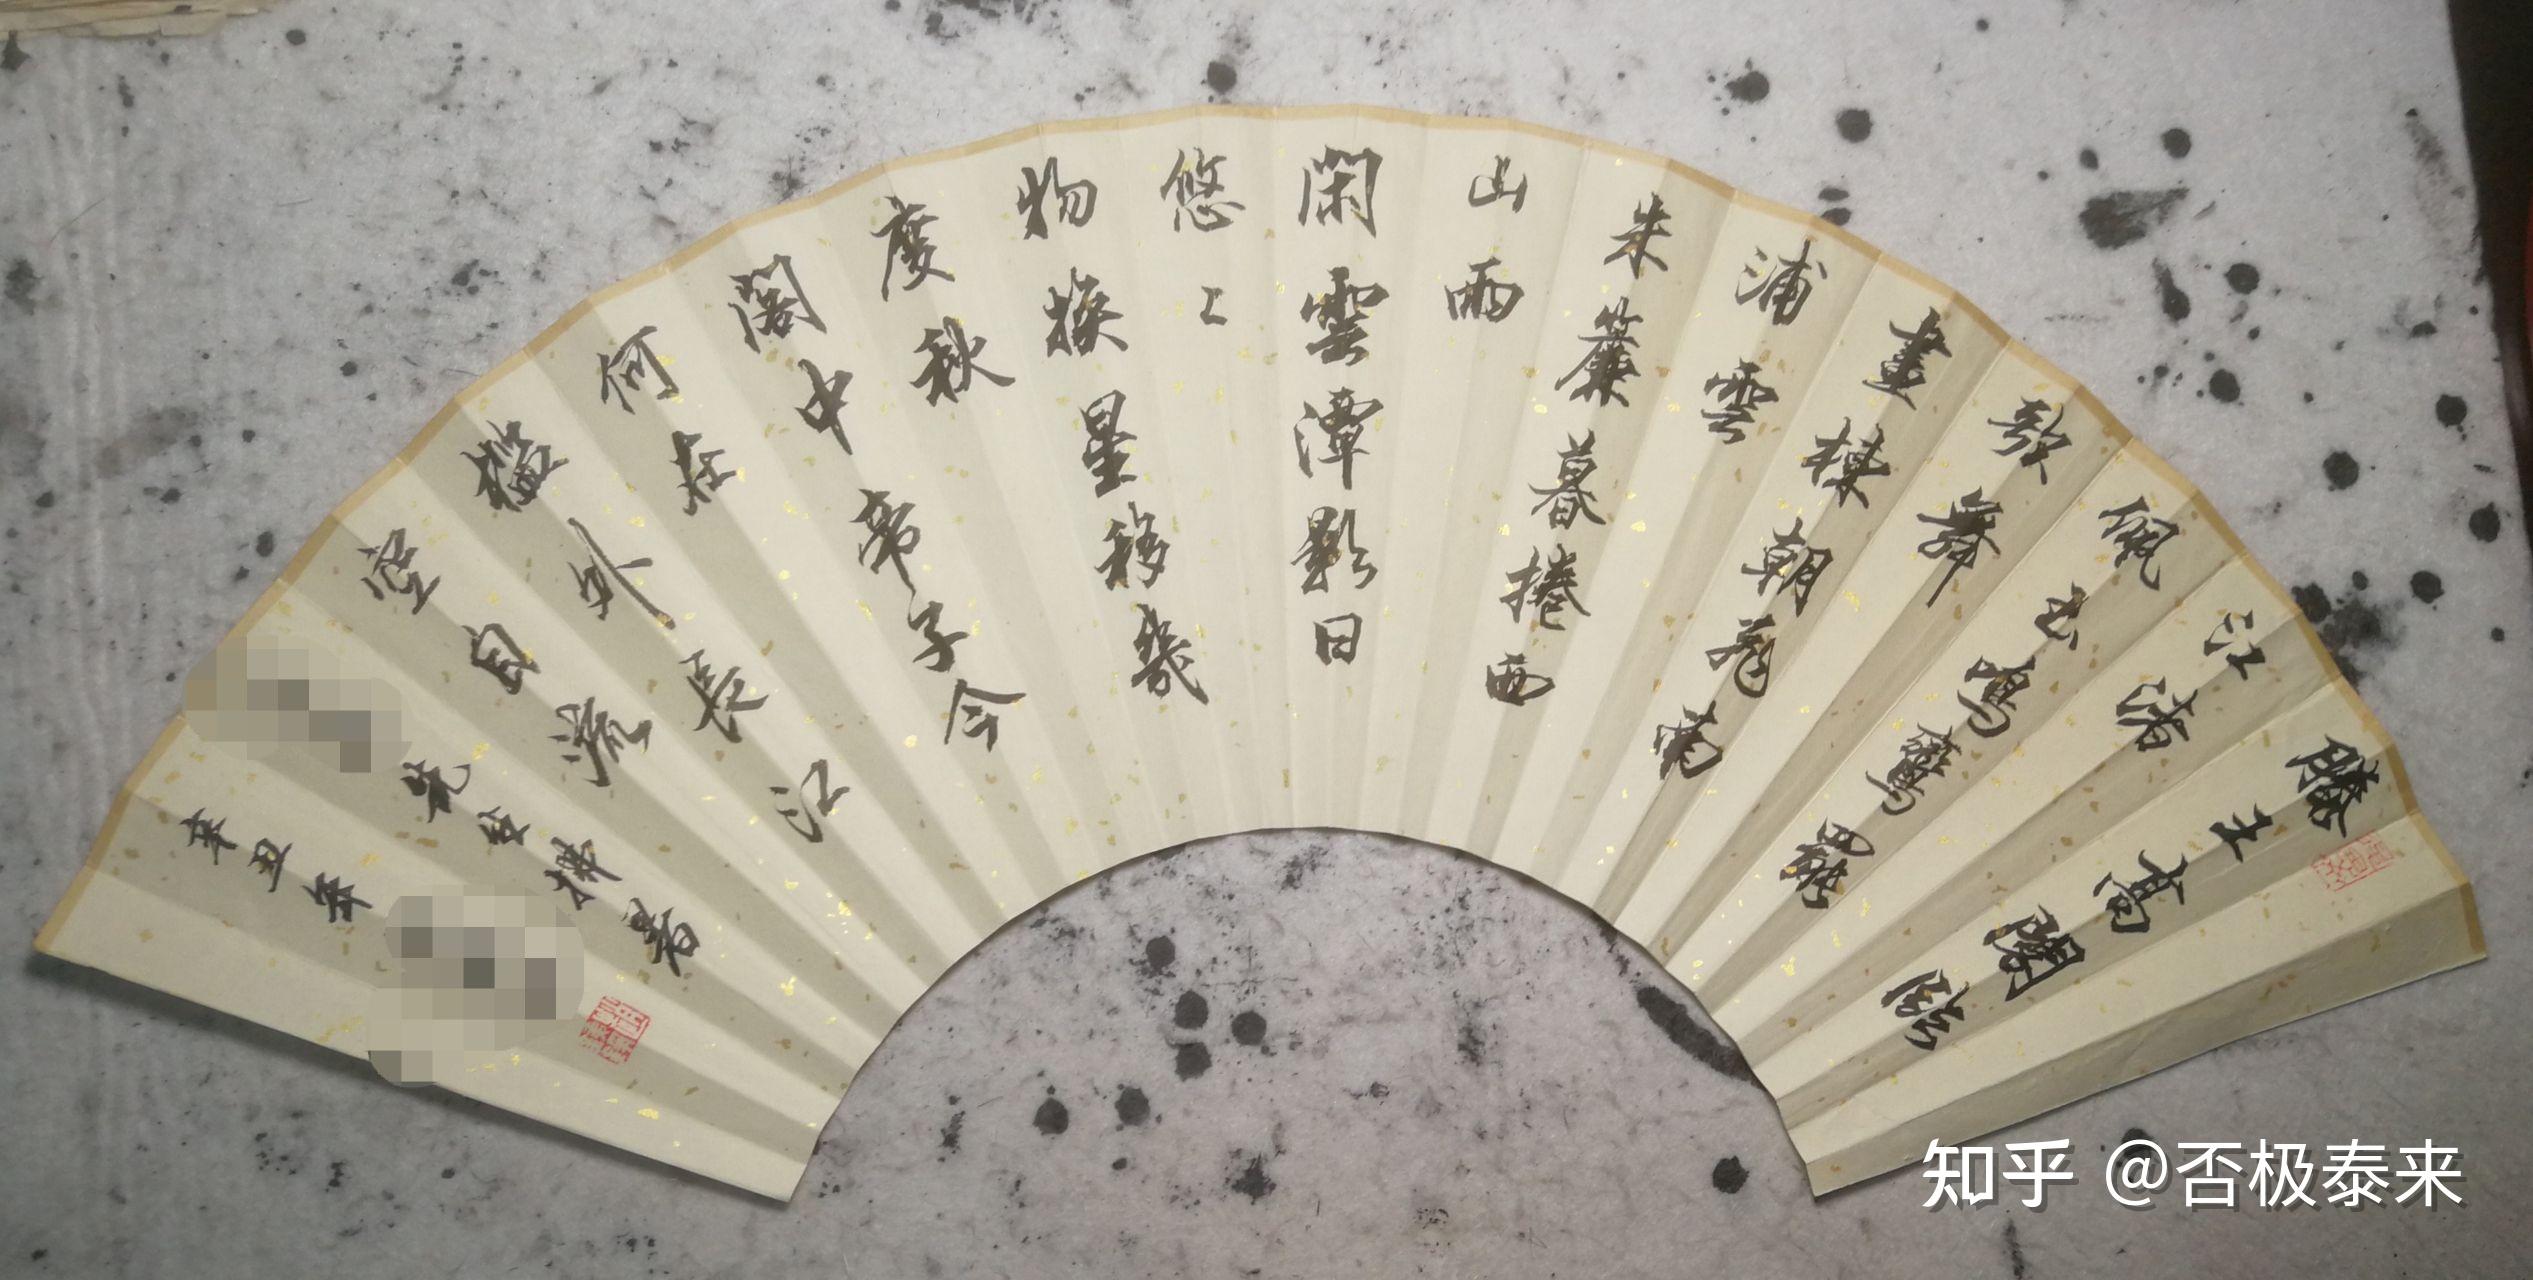 滕王高閣臨
江渚
佩玉鳴鸞罷
歌舞
畫棟朝飛南
浦雲
朱簾暮捲西
山雨
閑雲潭影日
悠〻
物換星移幾
度秋
閣中帝子今
何在
檻外長江
空自流
先生拂暑
辛丑年
知乎 @否极泰来